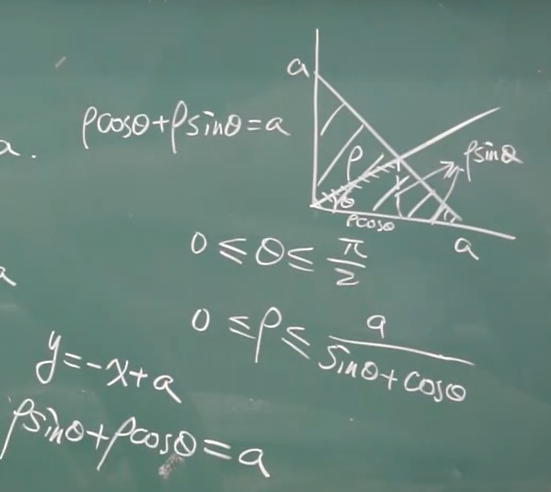 a
ρcosθ+ρsinθ=a
a.
ρ
ρsinθ
θ
ρcosθ
a
0≤θ≤π/2
a
0≤ρ≤a/(sinθ+cosθ)
y=-x+a
ρsinθ+ρcosθ=a